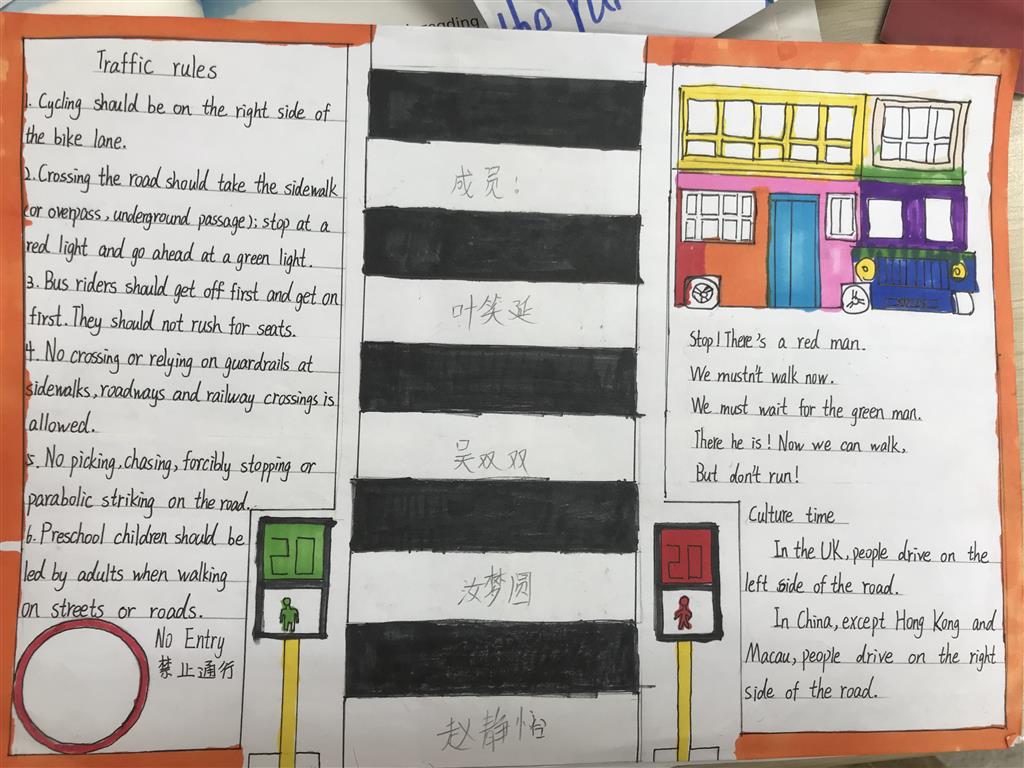 reading
the
Traffic rules
1. Cycling should be on the right side of
the bike lane.
2. Crossing the road should take the sidewalk
(or overpass, underground passage); stop at a
red light and go ahead at a green light.
3. Bus riders should get off first and get on
first. They should not rush for seats.
4. No crossing or relying on guardrails at
sidewalks, roadways and railway crossings is
allowed.
5. No picking, chasing, forcibly stopping or
parabolic striking on the road.
6. Preschool children should be
led by adults when walking
on streets or roads.
No Entry
禁止通行
20
成员:
叶笑延
吴双双
汝梦圆
赵静怡
20
Stop! There's a red man.
We mustn't walk now.
We must wait for the green man.
There he is! Now we can walk,
But don't run!
Culture time
In the UK, people drive on the
left side of the road.
In China, except Hong Kong and
Macau, people drive on the right
side of the road.